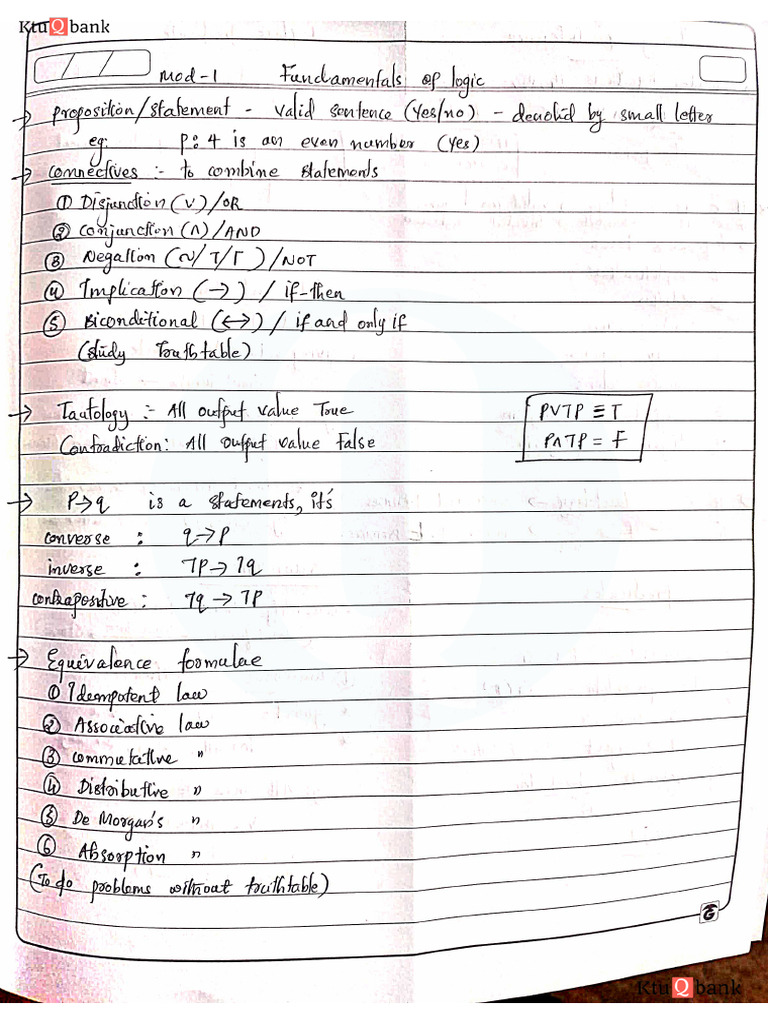 KtuQbank
Mod-1 Fundamentals of logic
→ Proposition/statement - valid sentence (Yes/no) - denoted by small letter
eg: p: 4 is an even number (Yes)
→ Connectives :- to combine statements
① Disjunction (∨)/OR
② Conjunction (∧)/AND
③ Negation (~/⊤/Γ)/NOT
④ Implication (→) / if-then
⑤ Biconditional (↔) / if and only if
(study Truthtable)
→ Tautology :- All output value True
Contradiction: All output value False
P∨⊤P ≡ T
P∧⊤P = F
→ P→q is a statements, it's
converse : q→P
inverse : ⊤P→⊤q
contrapositive : ⊤q → ⊤P
→ Equivalence formulae
① Idempotent law
② Associative law
③ commutative "
④ Distributive "
⑤ De Morgan's "
⑥ Absorption "
(To do problems without truthtable)
G
KtuQbank